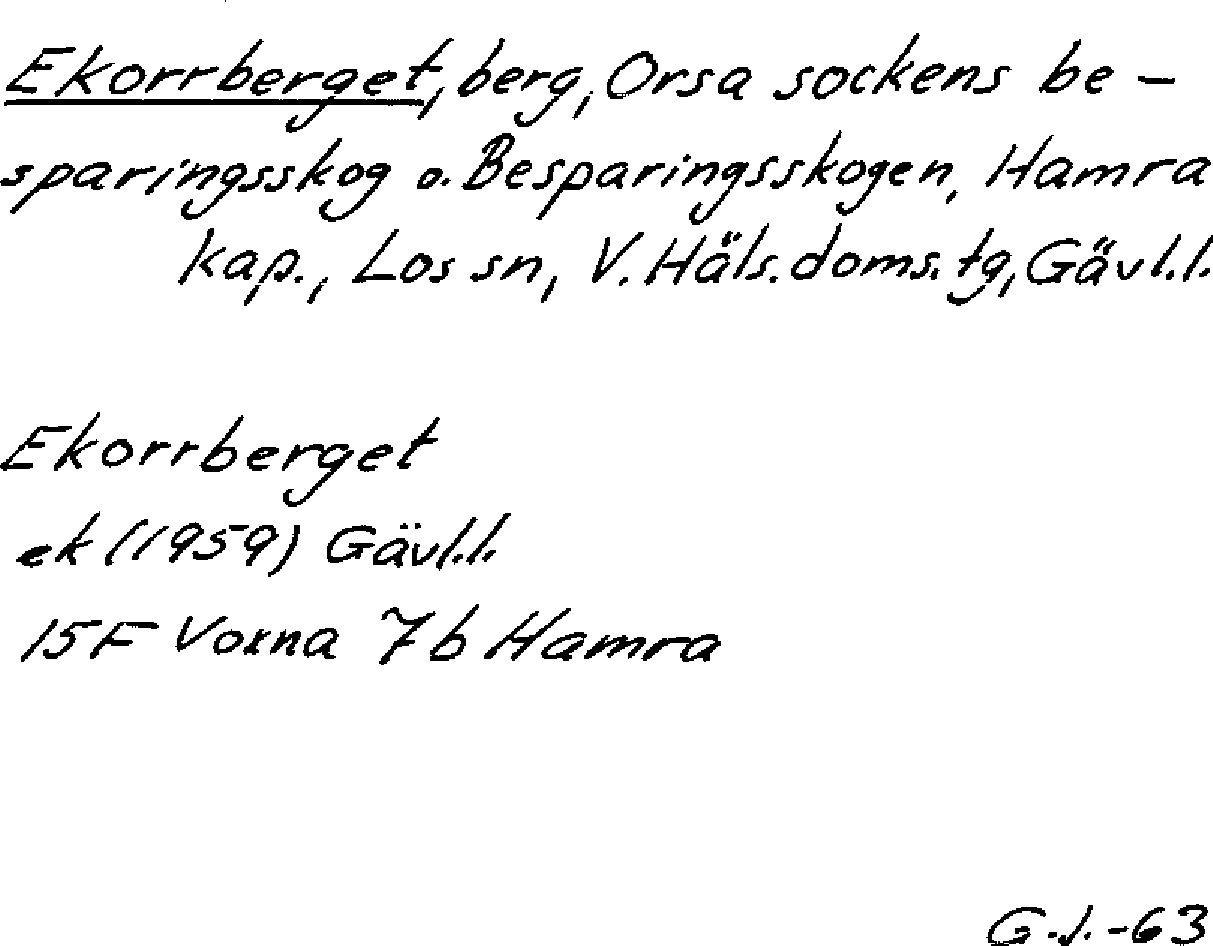 Ekorrberget, berg, Orsa sockens be-
sparingsskog o. Besparingsskogen, Hamra
kap., Los sn, V. Häls. doms. tg, Gävl.l.
Ekorrberget
ek (1959) Gävl.l.
15F Voxna 7b Hamra
G.J. -63